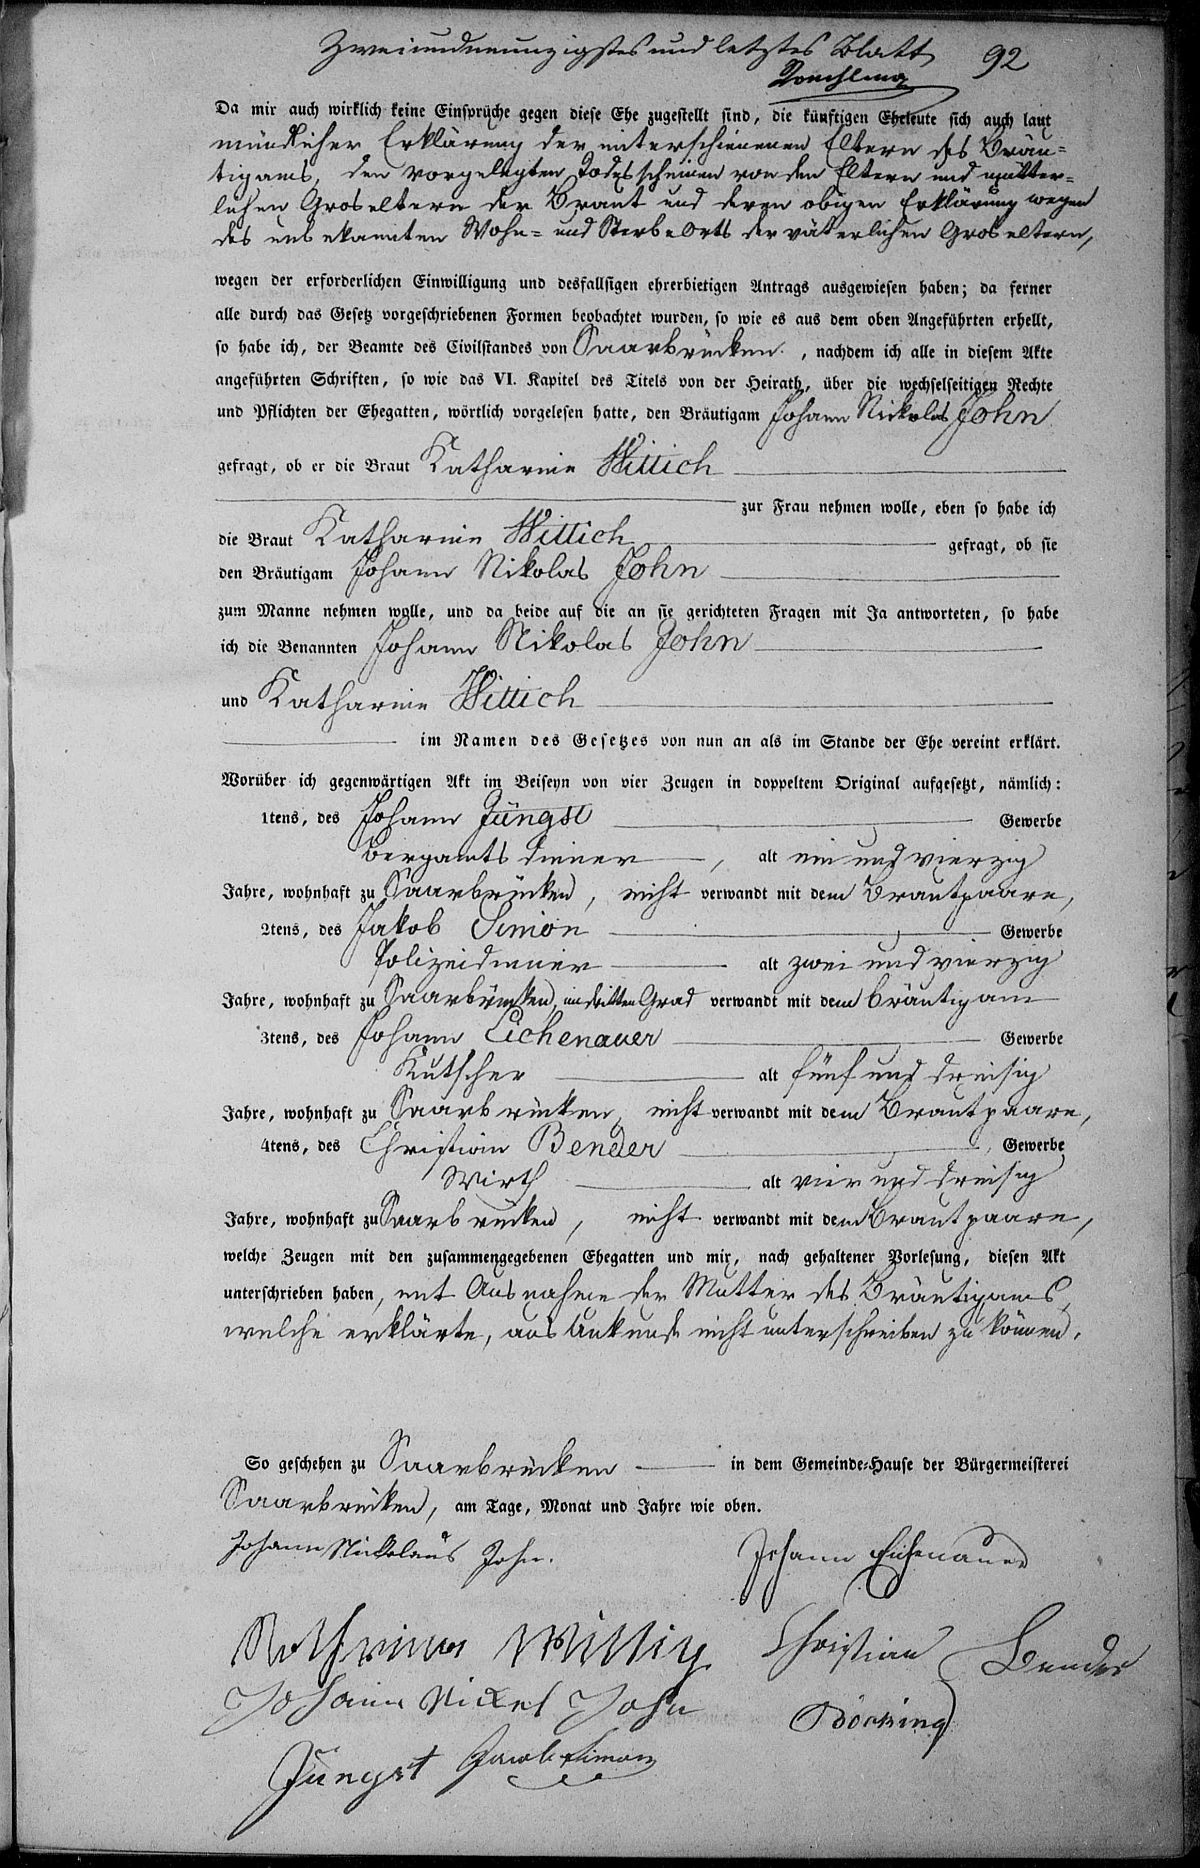 Zweiundneunzigstes und letztes Blatt 92
Roechling
Da mir auch wirklich keine Einsprüche gegen diese Ehe zugestellt sind, die künftigen Eheleute sich auch laut
mündlicher Erklärung der mitterschienenen Eltern des Bräu-
tigams, den vorgelegten Todesscheinen von den Eltern und mütter-
lichen Groseltern der Braut und deren obigen Erklärung wegen
des unbekannten Wohn- und Sterbeorts der väterlichen Groseltern,
wegen der erforderlichen Einwilligung und desfallsigen ehrerbietigen Antrags ausgewiesen haben; da ferner
alle durch das Gesetz vorgeschriebenen Formen beobachtet wurden, so wie es aus dem oben Angeführten erhellt,
so habe ich, der Beamte des Civilstandes von Saarbrücken, nachdem ich alle in diesem Akte
angeführten Schriften, so wie das VI. Kapitel des Titels von der Heirath, über die wechselseitigen Rechte
und Pflichten der Ehegatten, wörtlich vorgelesen hatte, den Bräutigam Johann Nickolas John
gefragt, ob er die Braut Katharine Wittich
zur Frau nehmen wolle, eben so habe ich
die Braut Katharine Wittich gefragt, ob sie
den Bräutigam Johann Nikolas John
zum Manne nehmen wolle, und da beide auf die an sie gerichteten Fragen mit Ja antworteten, so habe
ich die Benannten Johann Nikolas John
und Katharine Wittich
im Namen des Gesetzes von nun an als im Stande der Ehe vereint erklärt.
Worüber ich gegenwärtigen Akt im Beiseyn von vier Zeugen in doppeltem Original aufgesetzt, nämlich:
1tens, des Johann Jüngst Gewerbe
Bergamtsdiener, alt ein und vierzig
Jahre, wohnhaft zu Saarbrücken, nicht verwandt mit dem Brautpaare,
2tens, des Jakob Simon Gewerbe
Polizeidiener alt zwei und vierzig
Jahre, wohnhaft zu Saarbrücken, im dritten Grad verwandt mit dem Bräutigam
3tens, des Johann Eichenauer Gewerbe
Kutscher alt fünf und dreisig
Jahre, wohnhaft zu Saarbrücken, nicht verwandt mit dem Brautpaare,
4tens, des Christian Bender, Gewerbe
Wirth alt vier und dreisig
Jahre, wohnhaft zu Saarbrücken, nicht verwandt mit dem Brautpaare,
welche Zeugen mit den zusammengegebenen Ehegatten und mir, nach gehaltener Vorlesung, diesen Akt
unterschrieben haben, mit Ausnahme der Mutter des Bräutigams,
welche erklärte, aus Unkunde nicht unterschreiben zu können.
So geschehen zu Saarbrücken in dem Gemeinde-Hause der Bürgermeisterei
Saarbrücken, am Tage, Monat und Jahre wie oben.
Johann Nickolaus John. Johann Eichenauer
Kathrina Wittig Christian Bender
Johann Nickel John Böcking
Jüngst Jacob Simon